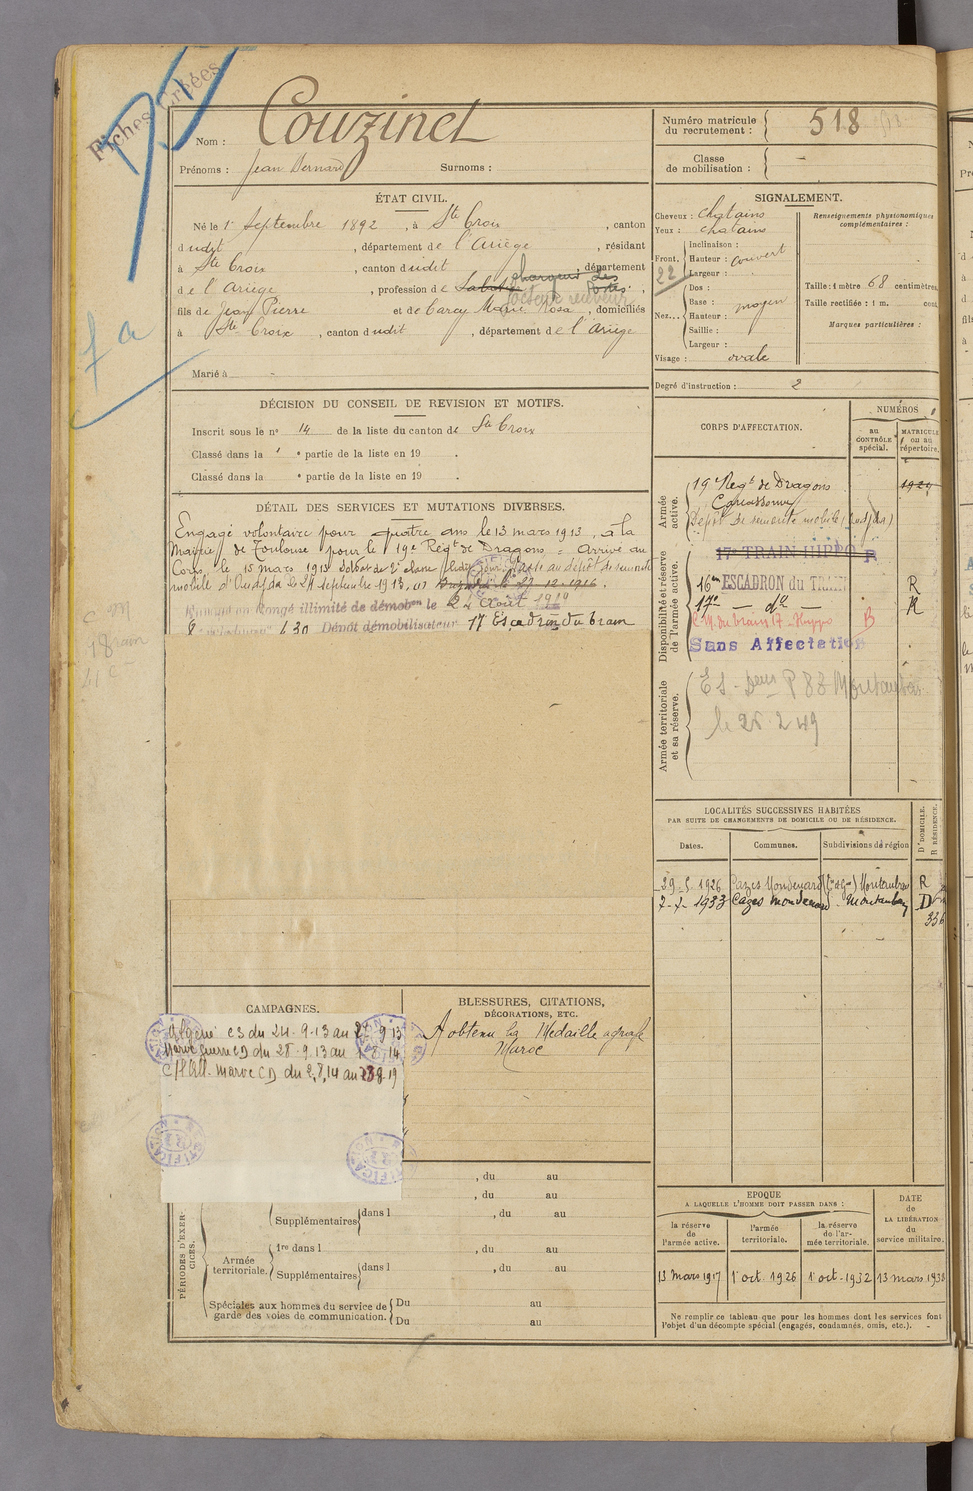 Fiches Créées
fa
Nom : Couzinet
Prénoms : Jean Bernard Surnoms :
Numéro matricule du recrutement : 518
Classe de mobilisation : -
ÉTAT CIVIL.
Né le 1er Septembre 1892, à Ste Croix, canton
dudit, département de l'Ariège, résidant
à Ste Croix, canton dudit, département
de l'Ariège, profession de chargeur des Postes
facteur receveur
fils de Jean Pierre et de Carcy Marie Rosa, domiciliés
à Ste Croix, canton dudit, département de l'Ariège
Marié à -
SIGNALEMENT.
Cheveux : chatains
Yeux : chatains
Front, Inclinaison :
Hauteur : couvert
Largeur :
22
Nez... Dos :
Base : moyen
Hauteur :
Saillie :
Largeur :
Visage : ovale
Renseignements physionomiques complémentaires :
Taille : 1 mètre 68 centimètres.
Taille rectifiée : 1 m. cent
Marques particulières :
Degré d'instruction : 2
DÉCISION DU CONSEIL DE REVISION ET MOTIFS.
Inscrit sous le n° 14 de la liste du canton de Ste Croix
Classé dans la e partie de la liste en 19 .
Classé dans la e partie de la liste en 19 .
DÉTAIL DES SERVICES ET MUTATIONS DIVERSES.
Engagé volontaire pour quatre ans le 13 mars 1913, à la
Mairie de Toulouse pour le 19e Régt de Dragons. Arrivé au
Corps le 15 mars 1913 soldat de 2e classe dudit jour. Passé au dépôt de remonte
mobile d'Oudjda le 24 septembre 1913,
congé illimité de démobon le 22 Août 1919
Dépôt démobilisateur 17 Escadron du train
CORPS D'AFFECTATION.
NUMÉROS
au CONTRÔLE spécial.
MATRICULE ou au répertoire.
Armée active.
19e Régt de Dragons 1924
Carcassonne
Dépôt de remonte mobile (Oudjda)
Disponibilité et réserve de l'armée active.
17e TRAIN HIPPO R
16em ESCADRON du TRAIN R
17e — do — R
C.M. du train 17 Hippo B
Sans Affectation
Armée territoriale et sa réserve.
Montauban
le 26 2 49
LOCALITÉS SUCCESSIVES HABITÉES
PAR SUITE DE CHANGEMENTS DE DOMICILE OU DE RÉSIDENCE.
Dates. Communes. Subdivisions de région D DOMICILE. R RÉSIDENCE.
29-5-1926 Cazes Mondenard (Tn et Gne) Montauban R
7-7-1933 Cazes Mondenard Montauban D
336
CAMPAGNES.
Algérie CS du 24-9-13 au 27 9 13
Maroc guerre CD du 28-9-13 au 1 8 14
C/All. Maroc CD du 2,8,14 au 23 8 19
RECTIFICATION
BLESSURES, CITATIONS,
DÉCORATIONS, ETC.
A obtenu la Médaille agrafe
Maroc
, du au
, du au
PÉRIODES D'EXERCICES.
Supplémentaires dans l , du au
Armée territoriale. 1re dans l , du au
Supplémentaires dans l , du au
Spéciales aux hommes du service de garde des voies de communication. Du au
Du au
EPOQUE
A LAQUELLE L'HOMME DOIT PASSER DANS :
la réserve de l'armée active. l'armée territoriale. la réserve de l'armée territoriale.
DATE de LA LIBÉRATION du service militaire.
13 mars 1917 1er oct. 1926 1er oct. 1932 13 mars 1938
Ne remplir ce tableau que pour les hommes dont les services font
l'objet d'un décompte spécial (engagés, condamnés, omis, etc.).